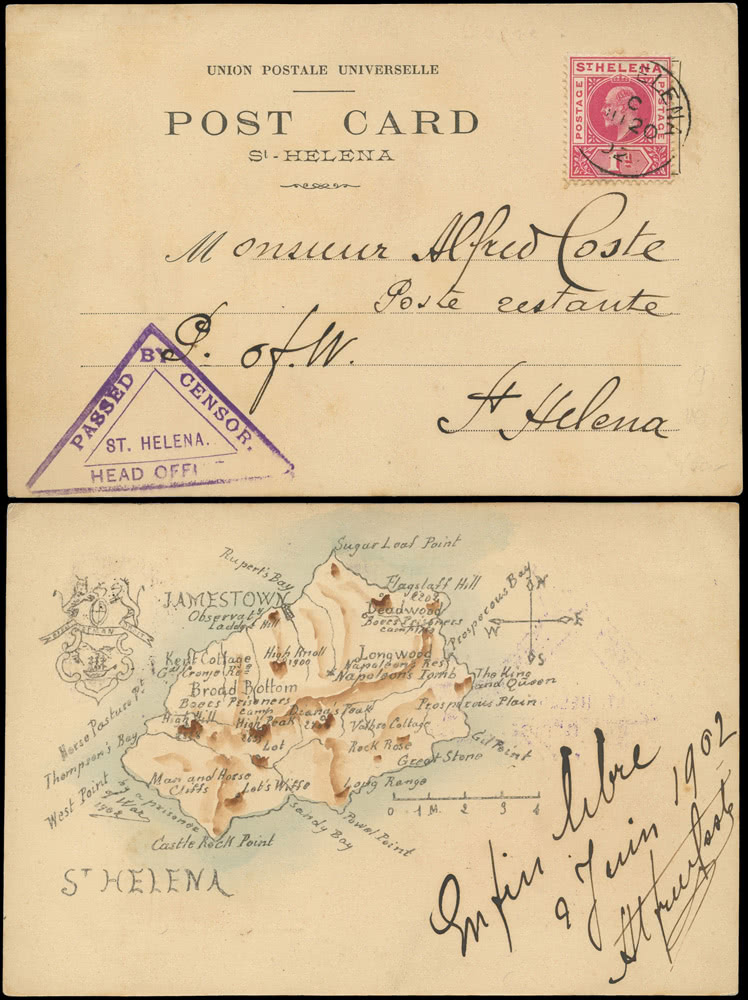 UNION POSTALE UNIVERSELLE
POST CARD
ST-HELENA
ST HELENA
POSTAGE
POSTAGE
1D
ELENA
C
20
02
Monsieur Alfred Coste
Poste restante
P. of. W.
St Helena
PASSED BY CENSOR.
ST. HELENA.
HEAD OFFI
Sugar Loaf Point
Rupert's Bay
Flagstaff Hill
JAMESTOWN
Observaty
Ladder Hill
Deadwood
Boers Prisoners
camping
Prosperous Bay
N
W
E
S
High Knoll
1900
Longwood
Napoleon's Res
Napoleon's Tomb
Kent Cottage
Gl Cronje Res
Broad Bottom
Boers Prisoners
camp
The King
and Queen
Prosperous Plain
High Hill
High Peak
Diana's Peak
Horse Pasture Pt
Thompson's Bay
West Point
Lot
Rock Rose
Great Stone
Gil Point
Man and Horse
Cliffs
Lot's Wiffe
Long Range
by a prisoner
of War
1902
Sandy Bay
Powel Point
Castle Rock Point
0 1 M. 2 3 4
ST HELENA
Enfin libre
9 Juin 1902